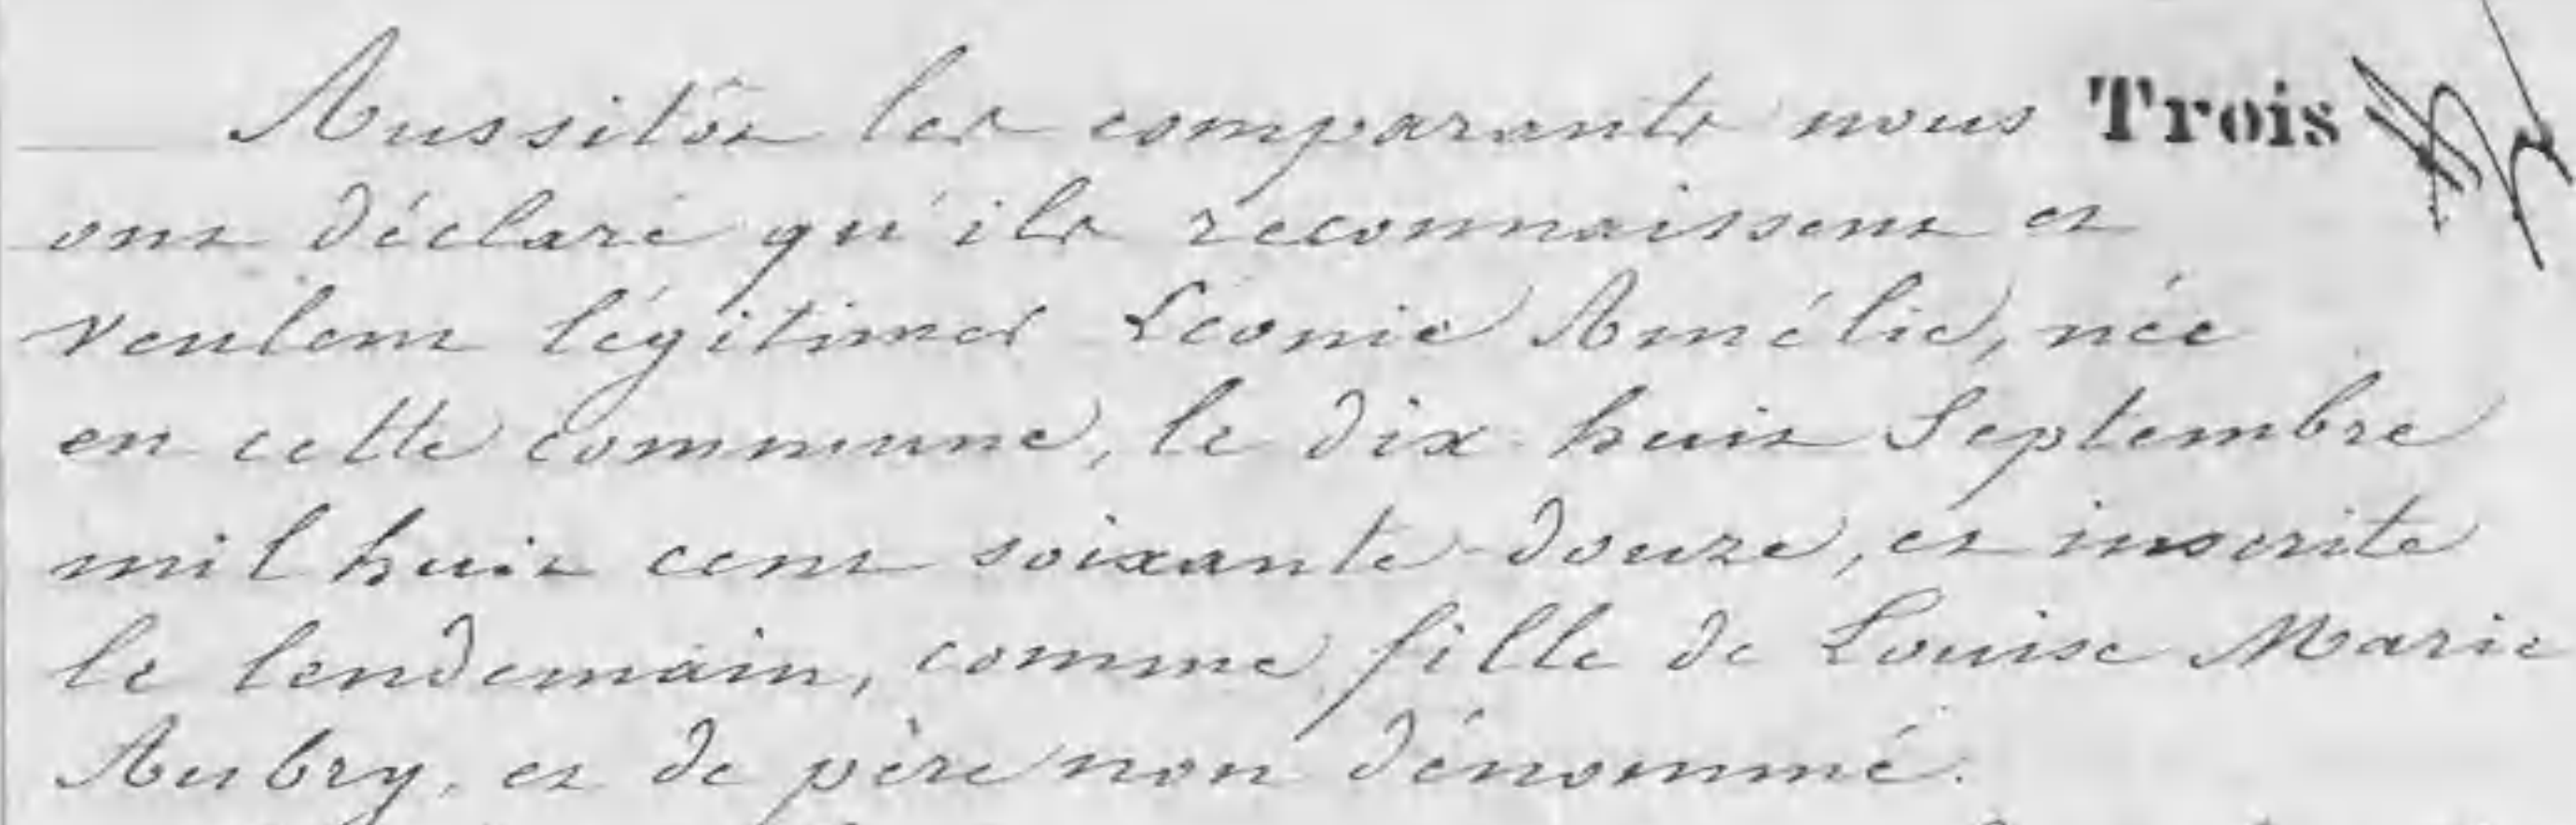 Aussitôt les comparants nous Trois
ont déclaré qu'ils reconnaissent et
veulent légitimer Léonie Amélie, née
en cette commune, le dix huit Septembre
mil huit cent soixante-douze, et inscrite
le lendemain, comme fille de Louise Marie
Aubry, et de père non dénommé.